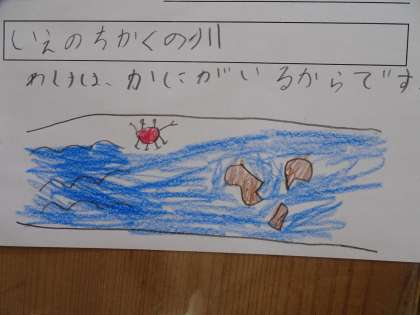 いえのちかくの川
わけは、かにがいるからです。